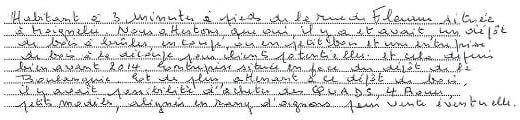 Habitant à 3 minutes à pieds de la rue du Fleurum située
à Morgnelu. Nous attestons que oui, il y a et avait, un dépôt
de bois à brûler, en coupe, ou en petit bois et une entreprise
de bois à la découpe pour client potentielle. et cela depuis
bien avant 2014 l'entreprise située en face du dépôt de la
Boulangerie Lot de plus attenant à ce dépôt du bois,
il y avait possibilité d'acheter des QUADS, 4 Roues,
petits modèles, alignés en rang d'oignons pour vente éventuelle.